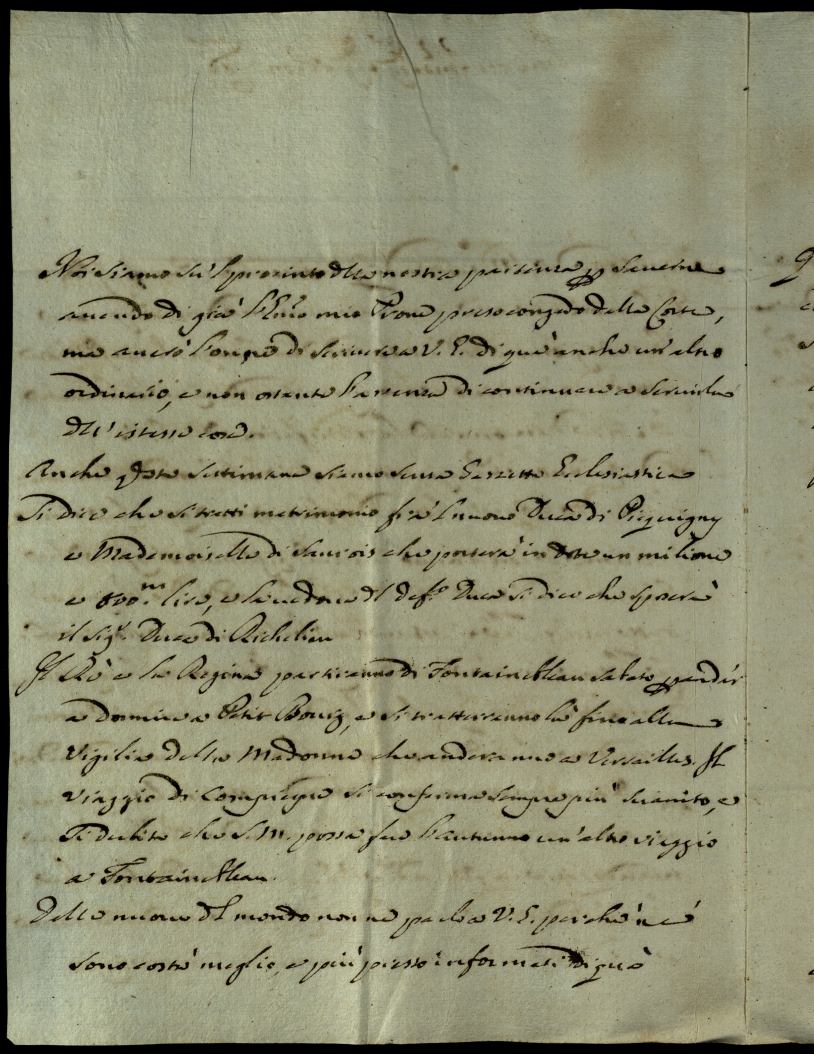 Noi siamo su'l procinto della nostra partenza p Saverne
avendo di già l'Emo mio Prone preso congedo dalla Corte,
ma averò l'onore di scrivere a V. E. di quà anche un'altro
ordinario, e non ostante l'assenza di continuare a servirla
dell'istesse cose.
Anche qsta settimana siamo senza Gazzetta Ecclesiastica
Si dice che si tratti matrimonio frà l nuovo Duca di Picquigny
e Mademoiselle di che porterà in dote un milione
e 800.m lire, e la vedova dl def.o Duca si dice che sposerà
il Sig.r Duca di Richelieu
Il Rè e la Regina partiranno di Fontainebleau sabato p andar
a dormire a Petit Bourg, e si tratteranno là fino alla
vigilia della Madonna che anderanno a Versailles. Il
viaggio di Compiegne si conferma sempre più svanito, e
si dubita che S. M. possa far l'autunno un'altro viaggio
a Fontainebleau.
Delle nuove dl mondo non ne parlo a V. E. perche n'è
sono costà meglio, e più presto informati di quà